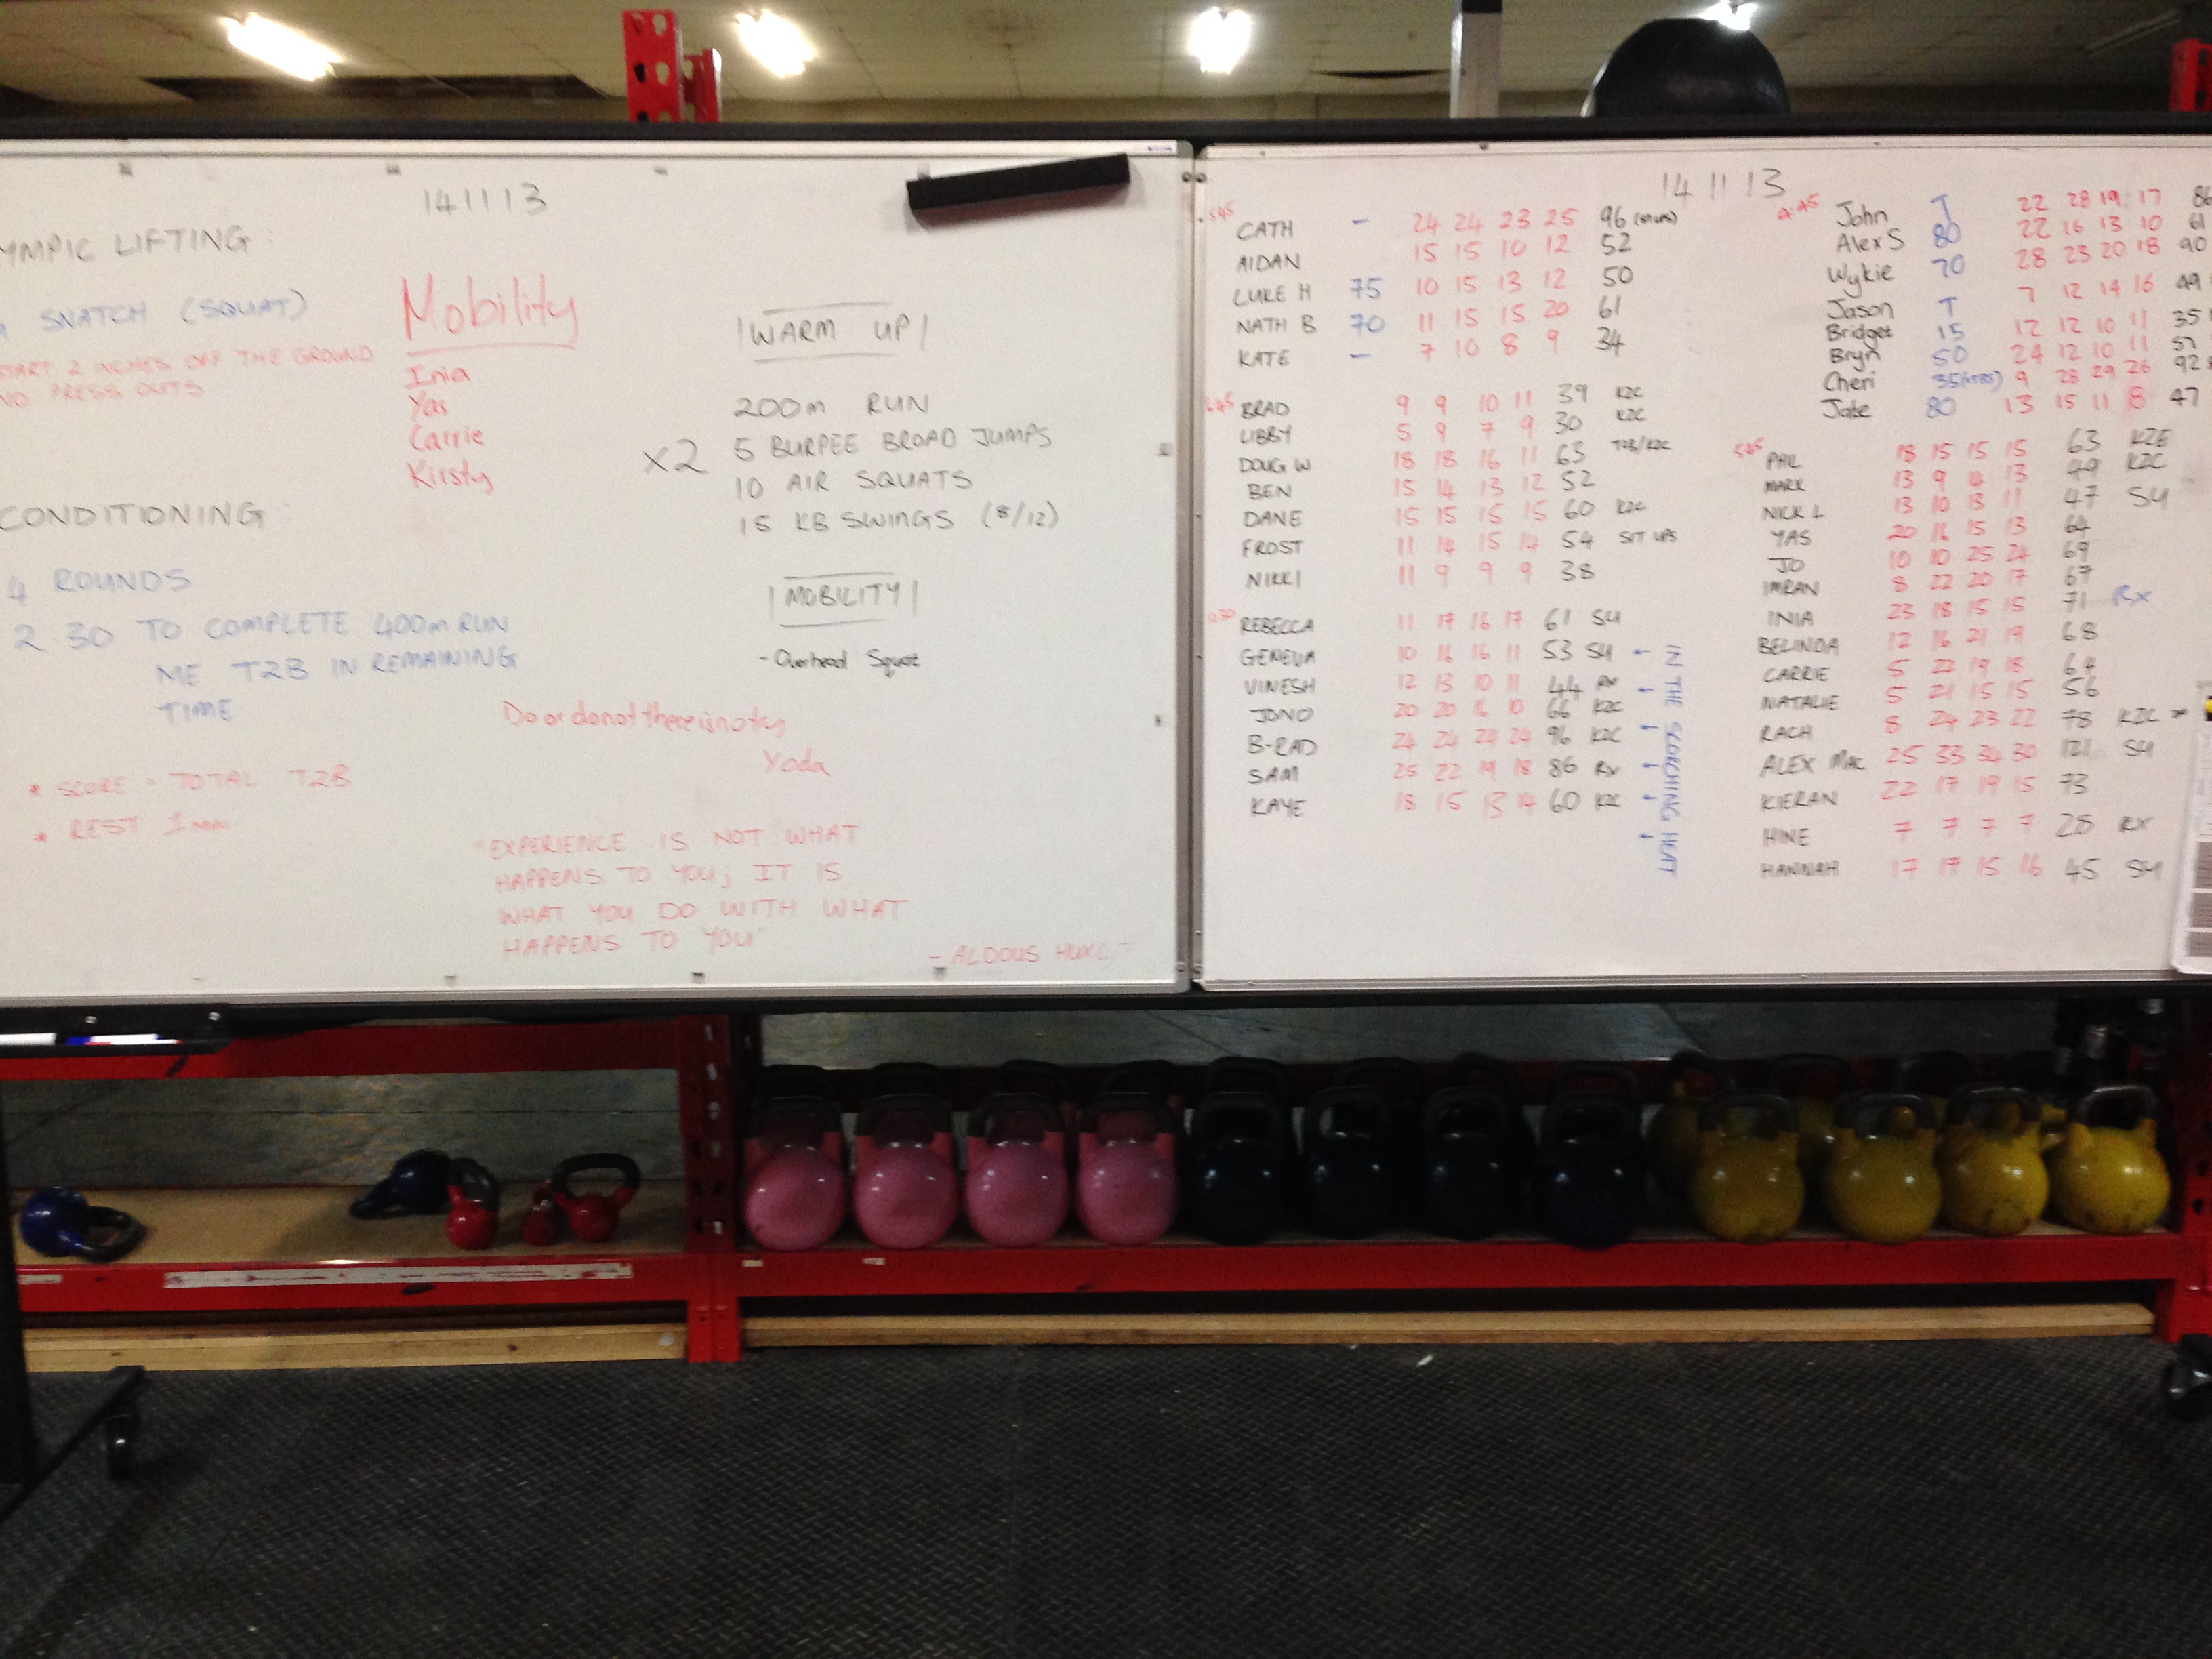 141113
YMPIC LIFTING:
SNATCH (SQUAT)
START 2 INCHES OFF THE GROUND
NO PRESS OUTS
CONDITIONING:
4 ROUNDS
2:30 TO COMPLETE 400m RUN
ME T2B IN REMAINING
TIME
* SCORE = TOTAL T2B
* REST 1 MIN
Mobility
Inia
Yas
Carrie
Kirsty
|WARM UP|
x2
200m RUN
5 BURPEE BROAD JUMPS
10 AIR SQUATS
15 KB SWINGS (8/12)
|MOBILITY|
- Overhead Squat
Do or do not there is no try
Yoda
"EXPERIENCE IS NOT WHAT
HAPPENS TO YOU; IT IS
WHAT YOU DO WITH WHAT
HAPPENS TO YOU"
- ALDOUS HUXL
14 11 13
545
CATH - 24 24 23 25 96
AIDAN 15 15 10 12 52
LUKE H 75 10 15 13 12 50
NATH B 70 11 15 15 20 61
KATE - 7 10 8 9 34
645
BRAD 9 9 10 11 39 K2C
LIBBY 5 9 7 9 30 K2C
DOUG W 18 18 16 11 63 T2B/K2C
BEN 15 14 13 12 52
DANE 15 15 15 15 60 K2C
FROST 11 14 15 14 54 SIT UPS
NIKKI 11 9 9 9 38
REBECCA 11 17 16 17 61 SU
GENEVA 10 16 16 11 53 SU
VINESH 12 13 10 11 44 RX
JONO 20 20 16 10 66 K2C
B-RAD 24 24 24 24 96 K2C
SAM 25 22 19 18 86 RX
KAYE 18 15 13 14 60 K2C
IN THE SCORCHING HEAT
John T 22 28 19 17 86
Alex S 80 22 16 13 10 61
Wykie 70 28 23 20 18 90
Jason T 7 12 14 16 49
Bridget 15 12 12 10 11 35
Bryn 50 24 12 10 11 57
Cheri 35 9 28 29 26 92
Jake 80 13 15 11 8 47
545
PHIL 18 15 15 15 63 K2E
MARK 13 9 14 13 49 K2C
NICK L 13 10 13 11 47 SU
YAS 20 16 15 13 64
JO 10 10 25 24 69
IMRAN 8 22 20 17 67
INIA 23 18 15 15 71 Rx
BELINDA 12 16 21 19 68
CARRIE 5 22 19 18 64
NATALIE 5 21 15 15 56
RACH 8 24 23 22 78 K2C
ALEX MAC 25 33 34 30 121 SU
KIERAN 22 17 19 15 73
HINE 7 7 7 7 28 RX
HANNAH 17 17 15 16 45 SU